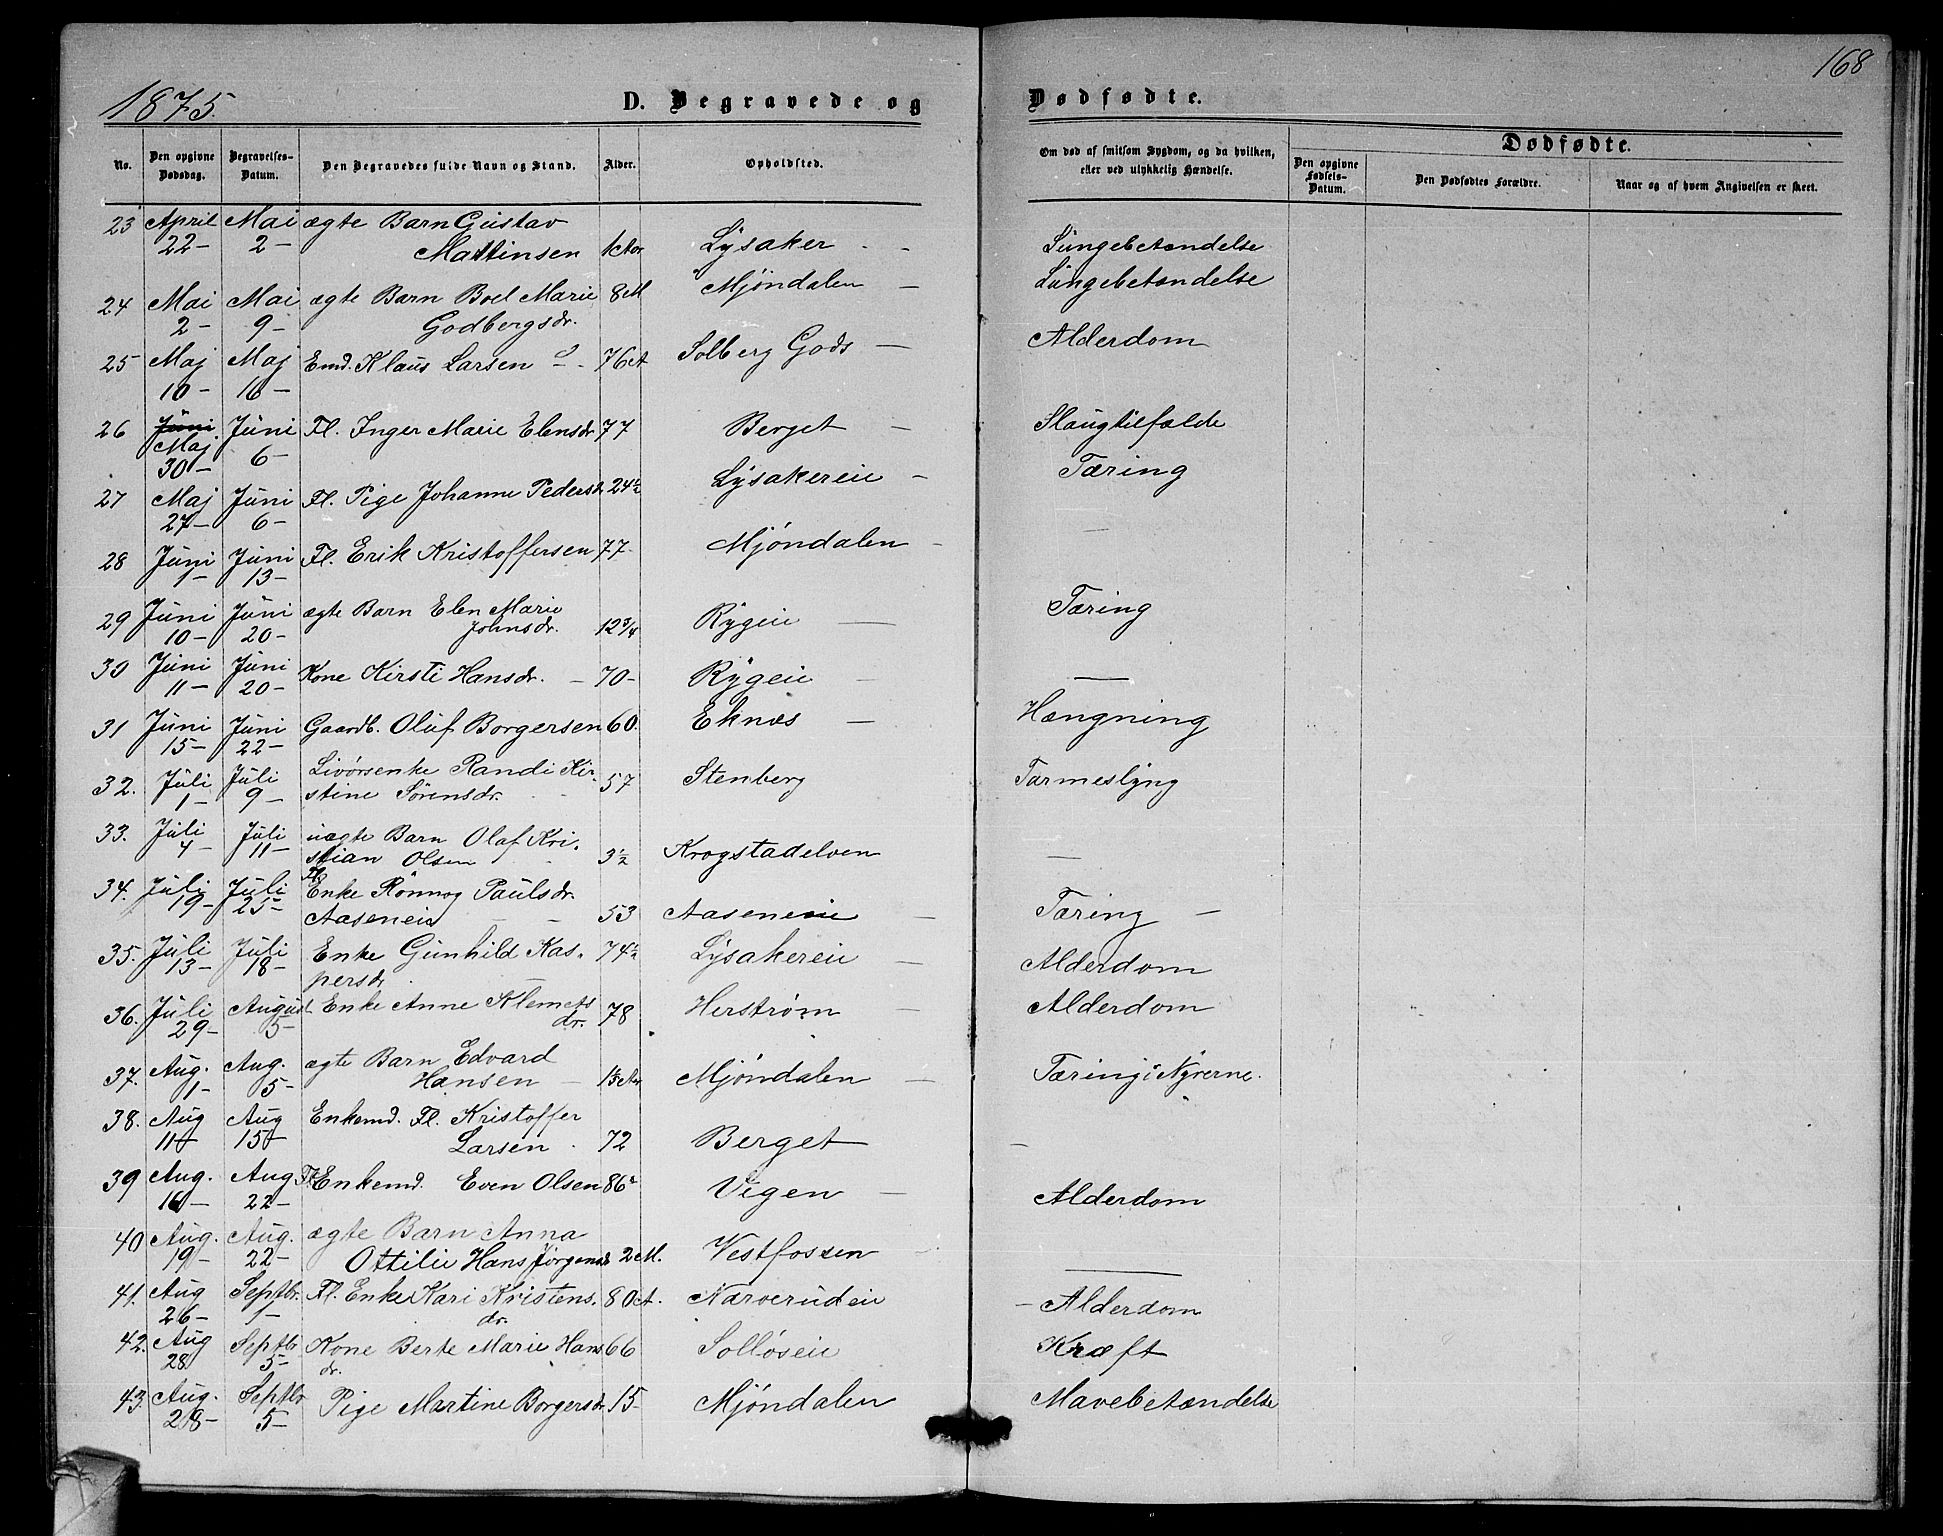 168
1875.
D. Begravede og Dødfødte.
No.
Den opgivne Dødsdag.
Begravelses-Datum.
Den Begravedes fulde Navn og Stand.
Alder.
Opholdsted.
Om død af smitsom Sygdom, og da hvilken, eller ved ulykkelig Hændelse.
Dødfødte.
Den opgivne Fødsels-Datum.
Den Dødfødtes Forældre.
Naar og af hvem Angivelsen er skeet.
23 April 22- Mai 2- ægte Barn Gustav
Mattinsen Lysaker - - Lungebetændelse
24 Mai 2- Mai 9- ægte Barn Boel Marie 8M Mjöndalen - Lungebetændelse
Godbergsdr.
25 Maj 10- Maj 16- Emd. Klaus Larsen 76A Solberg Gods - Alderdom
26 Juni Maj 30- Juni 6- Fl. Inger Marie Elensdr 77 Berget - Slaugtilfælde
27 Maj 27- Juni 6- Fl. Pige Johanne Pedersd. 24½ Lysakereie - Tæring
28 Juni 1- Juni 13- Fl. Erik Kristoffersen 77- Mjöndalen - -
29 Juni 10- Juni 20- ægte Barn Elen Marie
Johnsdr. 12¾ Rygeie - Tæring
30 Juni 11- Juni 20- Kone Kirsti Hansdr. - 70- Rygeie - -
31 Juni 15- Juni 22- Gaardb. Oluf Borgersen 60. Eknæs - Hængning
32. Juli 1- Juli 9- Livörsenke Randi Kir-
stine Sörensdr. 57 Stenberg Tarmeslyng
33. Juli 4- Juli 11- uægte Barn Olaf Kri-
stian Olsen 3½ Krogstadelven -
34. Juli 19- Juli 25- Fl. Enke Rönnog Paulsdr.
Aaseneie - - 53 Aaseneie - Tæring -
35. Juli 13- Juli 18- Enke Gunhild Kas- 74½ Lysakereie - Alderdom
persdr.
36. Juli 29- August 5- Enke Anne Klemets
dr. 78 Herström - Alderdom
37. Aug. 1- Aug. 5- ægte Barn Edvard
Hansen - Mjöndalen - Tæring i Nyrerne.
38. Aug 11- Aug 15- Enkemd. Fl. Kristoffer
Larsen 72 Berget -
39 Aug. 16- Aug 22- Fl. Enkemd. Even Olsen 86 Vegen - Alderdom
40 Aug. 19- Aug. 22- ægte Barn Anna
Ottilie Hans Jörgensd. 2M. Vestfossen - -
41. Aug 26- Septbr. 1- Fl. Enke Kari Kristens. 80A. Narverudeie - Alderdom
dr.
42. Aug 28 Septbr 5- Kone Berte Marie Hans 66 Sollöseie Kræft
dr.
43. Aug. 28- Septbr 5- Pige Martine Borgersdr 15- Mjöndalen Mavebetændelse